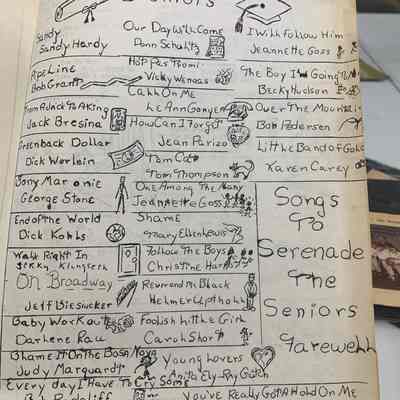 Seniors
Sandy
Sandy Hardy
Our Day Will Come
Donn Schultz
I Will Follow Him
Jeannette Goss
Pipe Line
Bob Grant
Vicky
Call On Me
LeAnn Gonyea
The Boy I'm Going To
Becky Hudson
From A Jack To A King
Jack Bresina
How Can I Forget
Jean Parizo
Over The Mountain
Bob Pedersen
Greenback Dollar
Dick Werlein
Tom Cat
Tom Thompson
Little Band of Gold
Karen Carey
Bony Maronie
George Stone
One Among The Many
Jeannette Goss
End of the World
Dick Kohls
Shame
Mary
Walk Right In
Follow The Boys
Christine
On Broadway
Jeff Bieswicker
Reverend Mr. Black
Helmer
Baby Workout
Darlene Rau
Foolish Little Girl
Carol Short
Blame It On The Bosa Nova
Judy Marquardt
Young Lovers
Anita Ely - Ray Gotch
Every day I Have To Cry Some
You've Really Got A Hold On Me
Songs
To
Serenade
The
Seniors
Farewell